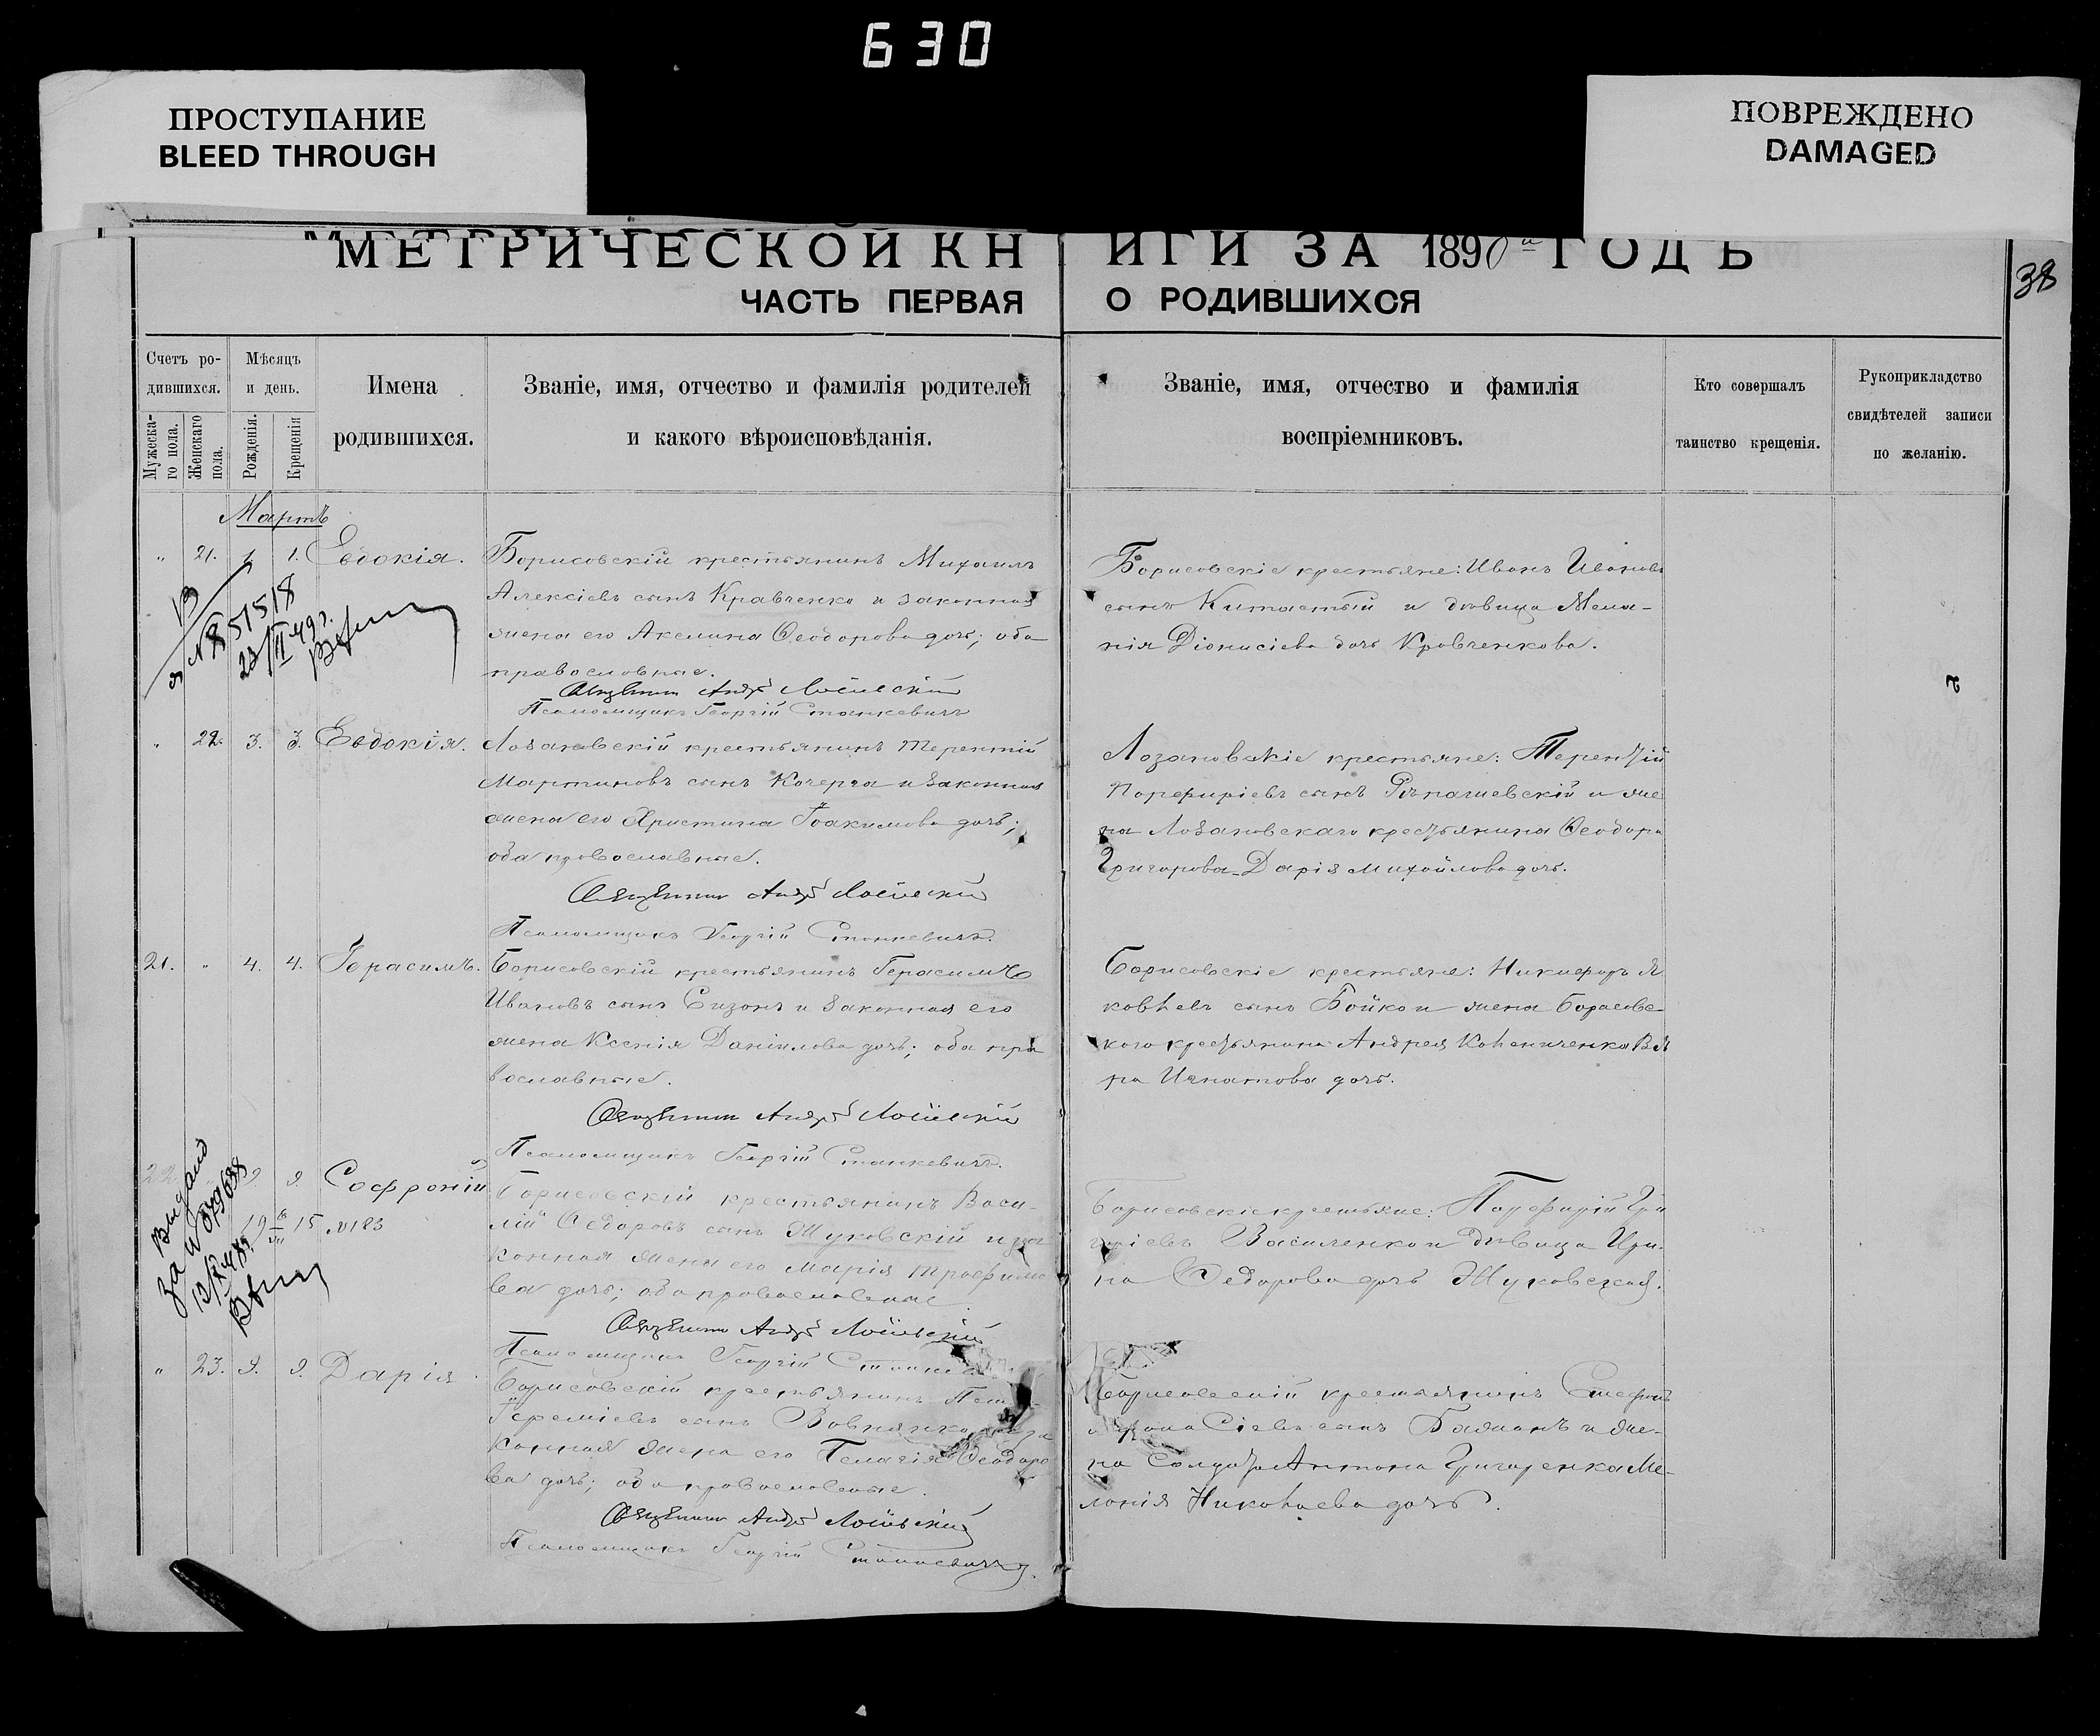 630
ПРОСТУПАНИЕ
BLEED THROUGH
ПОВРЕЖДЕНО
DAMAGED
МЕТРИЧЕСКОЙ КНИГИ ЗА 1890й ГОДЪ
38
ЧАСТЬ ПЕРВАЯ О РОДИВШИХСЯ
Счетъ ро-
дившихся.
Мужеска-
го пола.
Женскаго
пола.
Мѣсяцъ
и день.
Рожденія.
Крещенія
Имена
родившихся.
Званіе, имя, отчество и фамилія родителей
и какого вѣроисповѣданія.
Званіе, имя, отчество и фамилія
воспріемниковъ.
Кто совершалъ
таинство крещенія.
Рукоприкладство
свидѣтелей записи
по желанію.
Мартъ
" 21. 1. 1. Евдокія.
Борисовскій крестьянинъ Михаилъ
Алексіевъ сынъ Кравченко и законная
жена его Акелина Ѳеодорова дочь; оба
православные.
Священникъ Андр
Псаломщикъ Георгій Станкевичъ
Борисовскіе крестьяне: Иванъ Ивановъ
сынъ Китастый и дѣвица Мела-
нія Діонисіева дочь Кравченкова.
№ 851518
23/II 49 г.
" 22. 3. 3. Евдокія.
Лозановскій крестьянинъ Терентій
Мартиновъ сынъ Кочерга и законная
жена его Христина Іоакимова дочь;
оба православные.
Священникъ Андр
Псаломщикъ Георгій Станкевичъ.
Лозановскіе крестьяне: Терентій
Порфиріевъ сынъ и же
на Лозановскаго крестьянина Ѳеодора
Григорова Дарія Михайлова дочь.
21. " 4. 4. Герасимъ.
Борисовскій крестьянинъ Герасимъ
Ивановъ сынъ Сизонъ и законная его
жена Ксенія Даніилова дочь; оба пра
вославные.
Священникъ Андр
Псаломщикъ Георгій Станкевичъ.
Борисовскіе крестьяне: Никифоръ Я
ковлевъ сынъ Бойко и жена Борисовс-
кого крестьянина Андрея
ра Игнатова дочь.
22. " 9. 9. Софроній
Борисовскій крестьянинъ Васи-
лій Ѳедоровъ сынъ Жуковскій и за
конная жена его Марія Трофимо
ва дочь; оба православные.
Священникъ Андр
Псаломщикъ Георгій
Борисовскіе крестьяне: Порфирій Гри
горіевъ Василенко и дѣвица Ири-
на Ѳедорова дочь Жуковская.
19 15 №183
Видано
" 23. 9. 9. Дарія
Борисовскій крестьянинъ
Іереміевъ сынъ Вовнянко и за
конная жена его Пелагія Ѳеодоро
ва дочь; оба православные.
Священникъ Андр
Псаломщикъ Георгій Станкевичъ.
Борисовскій крестьянинъ Стефанъ
сынъ Бажанъ и же-
на Солдата Антона Григоренка Ме-
ланія Николаева дочь.